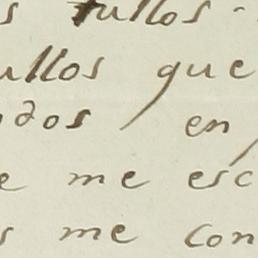 s tullos -
ullos que
ados en
e me esc
s me con